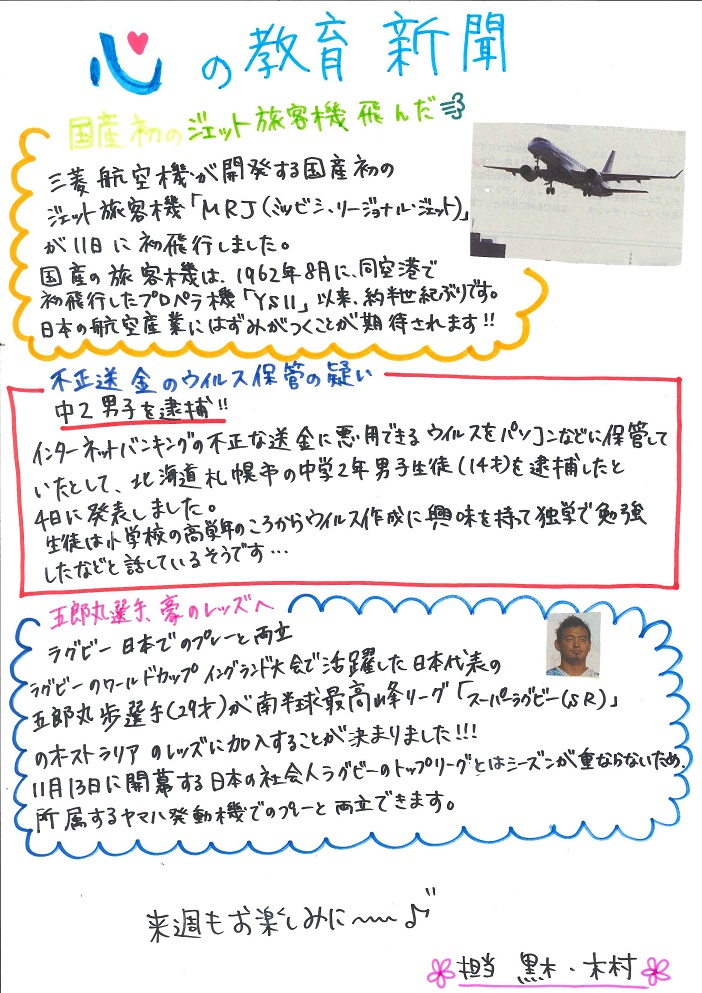 心の教育新聞
国産初のジェット旅客機飛んだ
三菱航空機が開発する国産初の
ジェット旅客機「MRJ(ミツビシ・リージョナル・ジェット)」
が11日に初飛行しました。
国産の旅客機は、1962年8月に、同空港で
初飛行したプロペラ機「YS11」以来、約半世紀ぶりです。
日本の航空産業にはずみがつくことが期待されます!!
不正送金のウイルス保管の疑い
中2男子を逮捕!!
インターネットバンキングの不正な送金に悪用できるウイルスをパソコンなどに保管して
いたとして、北海道札幌市の中学2年男子生徒(14才)を逮捕したと
4日に発表しました。
生徒は小学校の高学年のころからウイルス作成に興味を持って独学で勉強
したなどと話しているそうです…
五郎丸選手、豪のレッズへ
ラグビー日本でのプレーと両立
ラグビーのワールドカップイングランド大会で活躍した日本代表の
五郎丸歩選手(29才)が南半球最高峰リーグ「スーパーラグビー(SR)」
のオーストラリアのレッズに加入することが決まりました!!!
11月13日に開幕する日本の社会人ラグビーのトップリーグとはシーズンが重ならないため、
所属するヤマハ発動機でのプレーと両立できます。
来週もお楽しみに〜〜♪
担当 黒木・木村